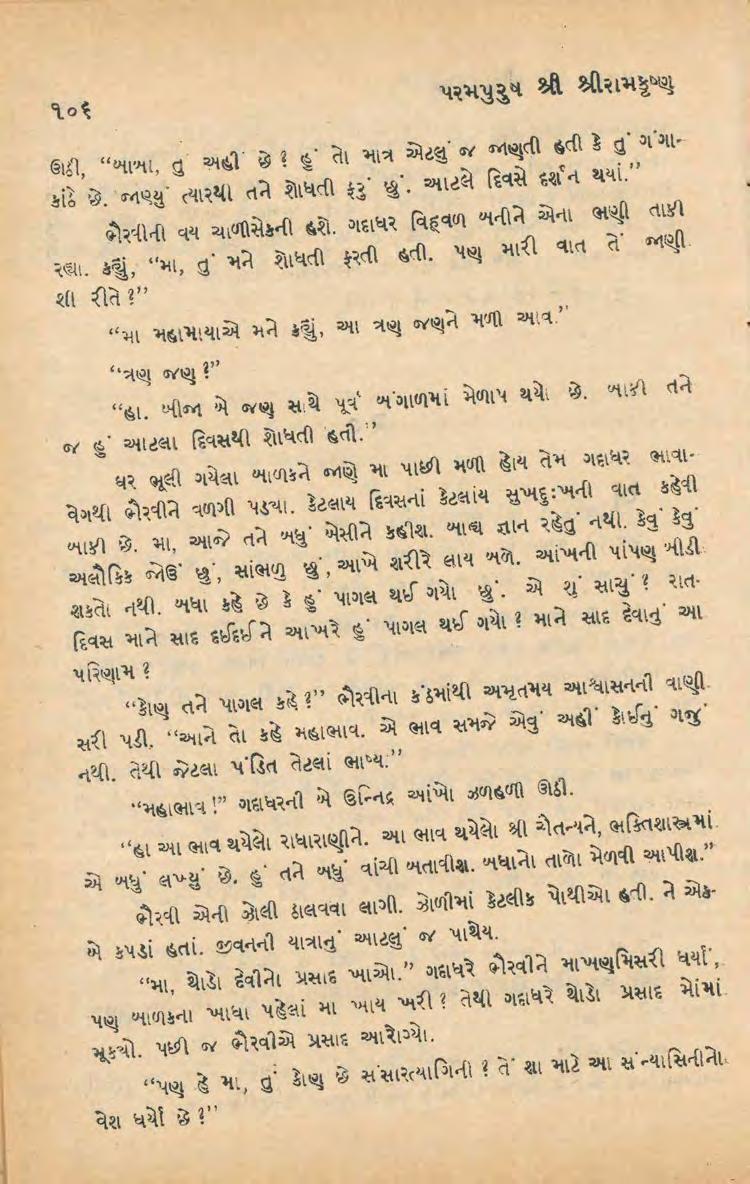 ૧૦૬ પરમપુરુષ શ્રી શ્રીરામકૃષ્ણ
ઊઠી, “બાબા, તું અહીં છે? હું તો માત્ર એટલું જ જાણતી હતી કે તું ગંગા-
કાંઠે છે. જાણ્યું ત્યારથી તને શોધતી ફરું છું. આટલે દિવસે દર્શન થયાં.”
ભૈરવીની વય ચાળીસેકની હશે. ગદાધર વિહ્વળ બનીને એના ભણી તાકી
રહ્યા. કહ્યું, “મા, તું મને શોધતી ફરતી હતી. પણ મારી વાત તેં જાણી
શી રીતે?”
“મા મહામાયાએ મને કહ્યું, આ ત્રણ જણને મળી આવ.”
“ત્રણ જણ?”
“હા. બીજા બે જણ સાથે પૂર્વ બંગાળમાં મેળાપ થયો છે. બાકી તને
જ હું આટલા દિવસથી શોધતી હતી.”
ઘર ભૂલી ગયેલા બાળકને જાણે મા પાછી મળી હોય તેમ ગદાધર ભાવા-
વેગથી ભૈરવીને વળગી પડ્યા. કેટલાય દિવસનાં કેટલાંય સુખદુઃખની વાત કહેવી
બાકી છે. મા, આજે તને બધું બેસીને કહીશ. બાહ્ય જ્ઞાન રહેતું નથી. કેવું કેવું
અલૌકિક જોઉં છું, સાંભળું છું, આખે શરીરે લાય બળે. આંખની પાંપણ બીડી
શકતો નથી. બધા કહે છે કે હું પાગલ થઈ ગયો છું. એ શું સાચું? રાત-
દિવસ માને સાદ દઈદઈને આખરે હું પાગલ થઈ ગયો? માને સાદ દેવાનું આ
પરિણામ?
“કોણ તને પાગલ કહે?” ભૈરવીના કંઠમાંથી અમૃતમય આશ્વાસનની વાણી
સરી પડી. “આને તો કહે મહાભાવ. એ ભાવ સમજે એવું અહીં કોઈનું ગજું
નથી. તેથી જેટલા પંડિત તેટલાં ભાષ્ય.”
“મહાભાવ!” ગદાધરની બે ઉન્નિદ્ર આંખો ઝળહળી ઊઠી.
“હા આ ભાવ થયેલો રાધારાણીને. આ ભાવ થયેલો શ્રી ચૈતન્યને, ભક્તિશાસ્ત્રમાં
એ બધું લખ્યું છે. હું તને બધું વાંચી બતાવીશ. બધાનો તાળો મેળવી આપીશ.”
ભૈરવી એની ઝોલી ઠાલવવા લાગી. ઝોળીમાં કેટલીક પોથીઓ હતી. ને એક-
બે કપડાં હતાં. જીવનની યાત્રાનું આટલું જ પાથેય.
“મા, થોડો દેવીનો પ્રસાદ ખાઓ.” ગદાધરે ભૈરવીને માખણમિસરી ધર્યાં,
પણ બાળકના ખાધા પહેલાં મા ખાય ખરી? તેથી ગદાધરે થોડો પ્રસાદ મોંમાં
મૂક્યો. પછી જ ભૈરવીએ પ્રસાદ આરોગ્યો.
“પણ હે મા, તું કોણ છે સંસારત્યાગિની? તેં શા માટે આ સંન્યાસિનીનો
વેશ ધર્યો છે?”